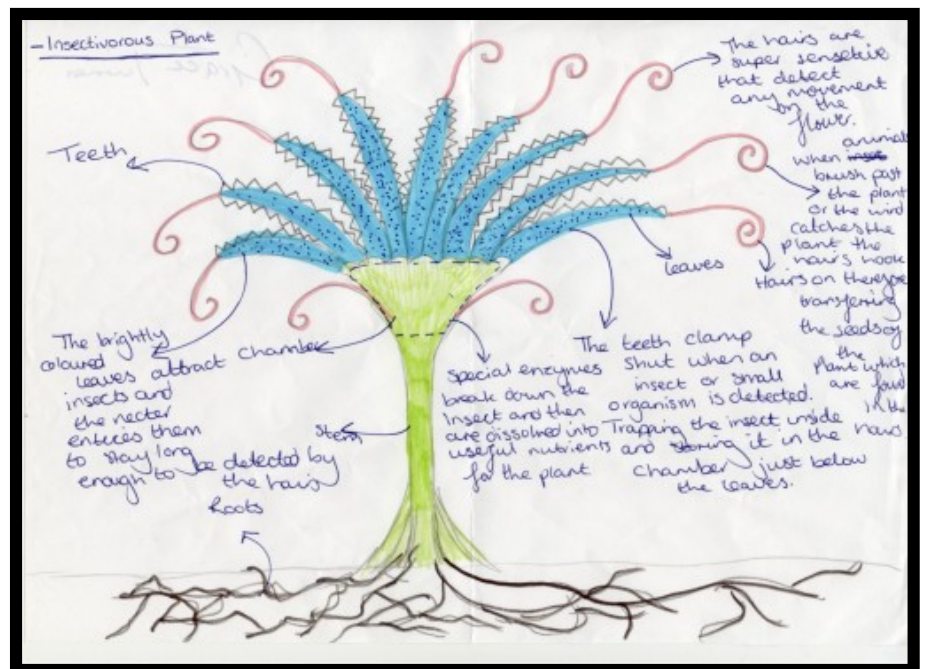 - Insectivorous Plant
The hairs are
super sensetive
that detect
any movement
on the
flower.
Teeth
animals
when
brush past
the plant
or the wind
catches the
plant the
hair's hook
Hairs on therefore
transferring
the seeds of
the
Plant which
are found
in the
hairs
leaves
The brightly
coloured
leaves attract
insects and
the necter
entices them
to stay long
enough to be detected by
the hairs
Chamber
Special enzymes
break down the
Insect and then
are dissolved into
useful nutrients
for the plant
The teeth clamp
Shut when an
insect or small
organism is detected.
Trapping the insect inside
and storing it in the
Chamber just below
the leaves.
Stem
Roots